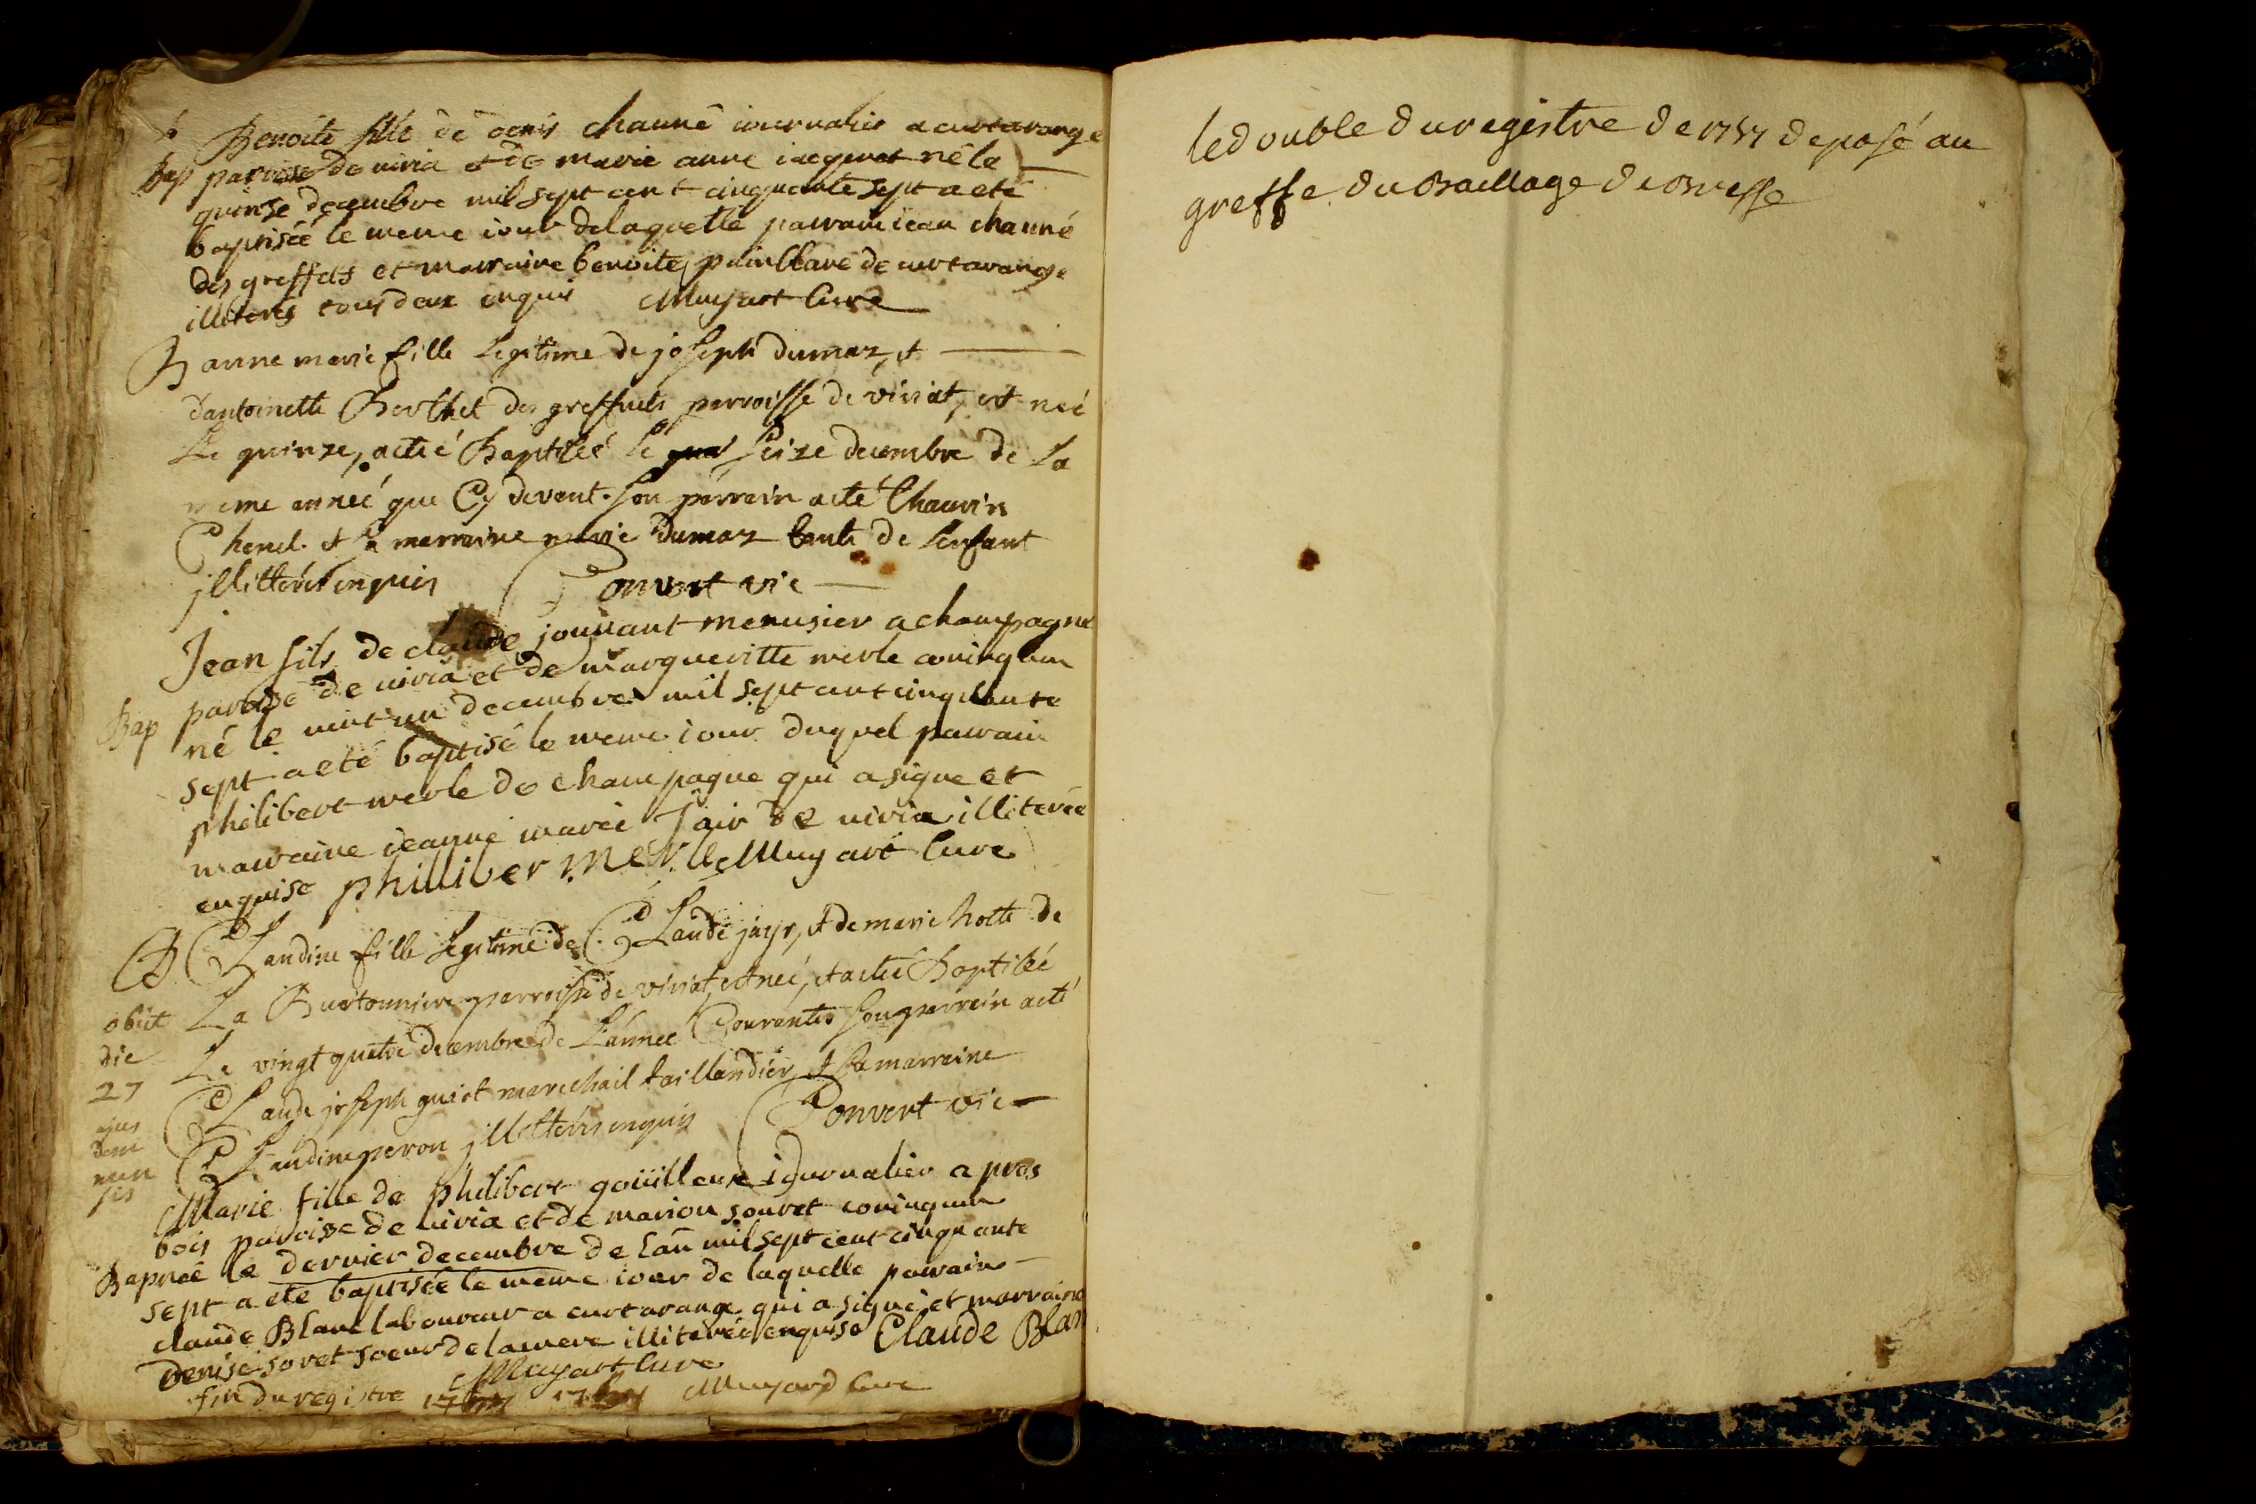 Benoite fille de denis chauné iournalier a curtarange
Bap paroisse de viria et de marie anne iaquinot née le
quinse decembre mil sept cent cinquante sept a eté
baptisée le meme iour delaquelle parrain iean chauné
des greffets et marraine benoite painblanc de curtarange
illiterés tous deux enquis Muyart Curé
B anne marie fille Legitime de joseph dumaz, et
d'antoinette Berthet des greffets parroisse de viriat, est neé
Le quinze, a eté Baptiseé le seize decembre de La
meme anneé que Cy devant. son parrain a eté Chauvin
et sa marraine marie Dumaz tante de Lenfant
jllitterés enquis Convert vic
Jean fils de claude jouvant menusier a champagne
paroisse de viria et de margueritte merle
Bap né le vint un decembre mil sept cent cinquante
sept a eté baptisé le meme iour duquel parrain
philibert merle de champagne qui a signe et
marraine ieanne marie Jair de viria illiterée
enquise philliber merlle Muyart Curé
B Claudine fille Legitime de Claude jayr, et de marie hotte de
obiit La parroisse de viriat, est neé, et a eté Baptiseé
die Le vingt quatre decembre de Lannee Courante son parrain a eté
27 Claude joseph guiet marechail taillandier, et sa marraine
ejus
dem Claudine peron jllitterés enquis Convert vic
men
sis
Marie fille de philibert goüilleux iournalier a pres
bois paroisse de viria et de marion souret
Bap née le dernier decembre de l'an mil sept cent cinquante
sept a eté baptisée le meme iour de laquelle parrain
claude Blanc laboureur a curtarange qui a signé et marraine
denise soret soeur de la mere illiterée enquise Claude Blan
Muyart Cure
fin du registre 1757 Muyard Cure
le double du registre de 1757 deposé au
greffe du Baillage de Bresse